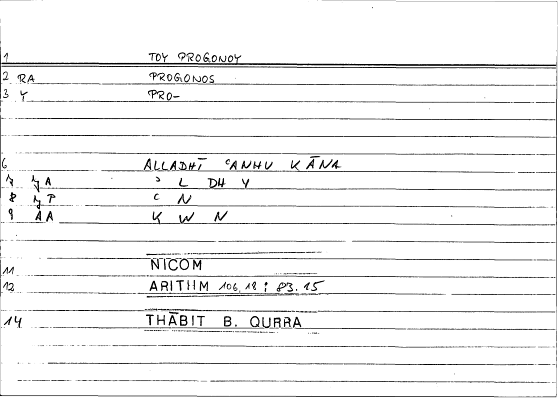 1 TOY PROGONOY
2 RA PROGONOS
3 Y PRO-
6 ALLADHĪ ʿANHU KĀNA
ʾ L DH Y
8 ʿ N
9 AA K W N
11 NICOM
12 ARITHM 106.18 : 83.15
14 THĀBIT B. QURRA